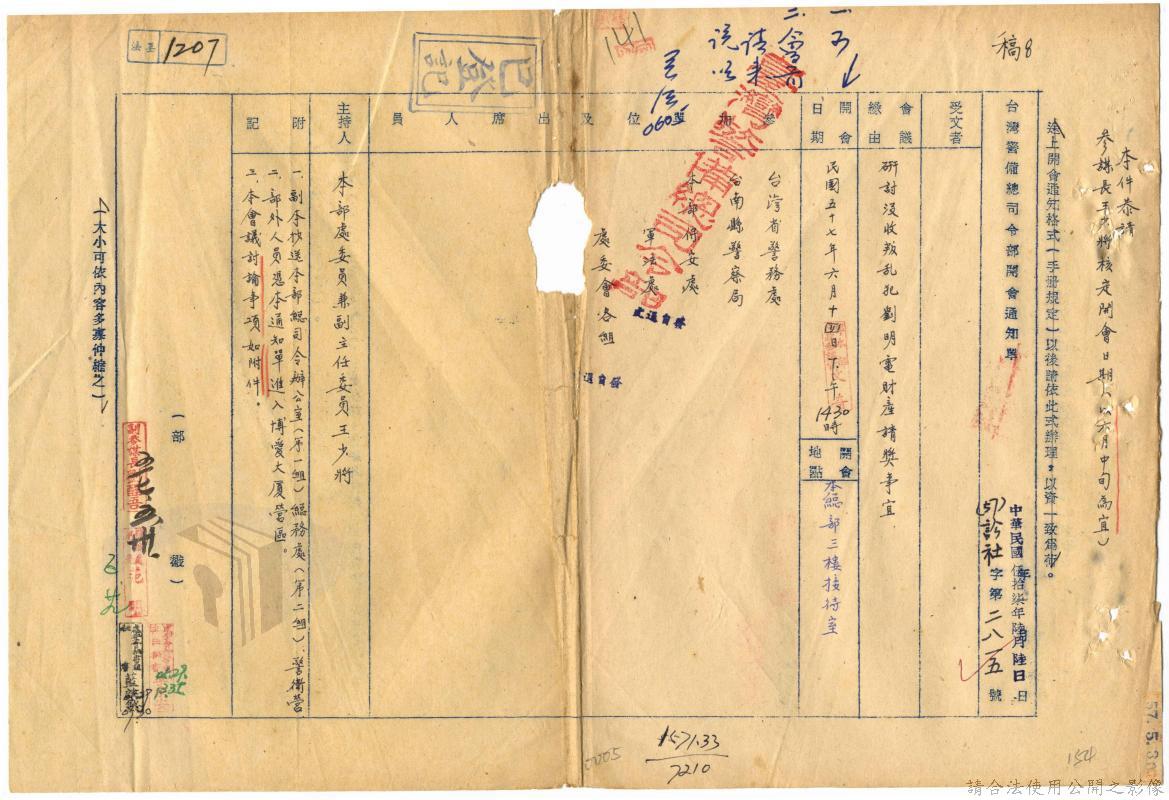 稿8
本件恭請
參謀長王少將核定開會日期(以六月中旬為宜)
送上開會通知格式(手冊規定)以後請依此式辦理,以資一致為荷。
台灣警備總司令部開會通知單
中華民國伍拾柒年陸月陸日
診社字第二八五號
受文者
會議緣由
研討沒收叛乱犯劉明電財產請獎事宜
開會日期
民國五十七年六月十四日下午1430時
開會地點
本總部三樓接待室
參加單位及出席人員
台湾省警務處
台南縣警察局
本部保安處
軍法處
處委會各組
主持人
本部處委員兼副主任委員王少將
附記
一、副本抄送本部總司令辦公室(第一組)總務處(第二組)警衛營
二、部外人員憑本通知單進入博愛大厦營區。
三、本會議討論事項如附件。
(大小可依內容多寡伸縮之)
(部戳)
臺灣警備總司令部
已登記
1207
141
發自通
157133
7210
0005
154
57.5.30
請合法使用公開之影像